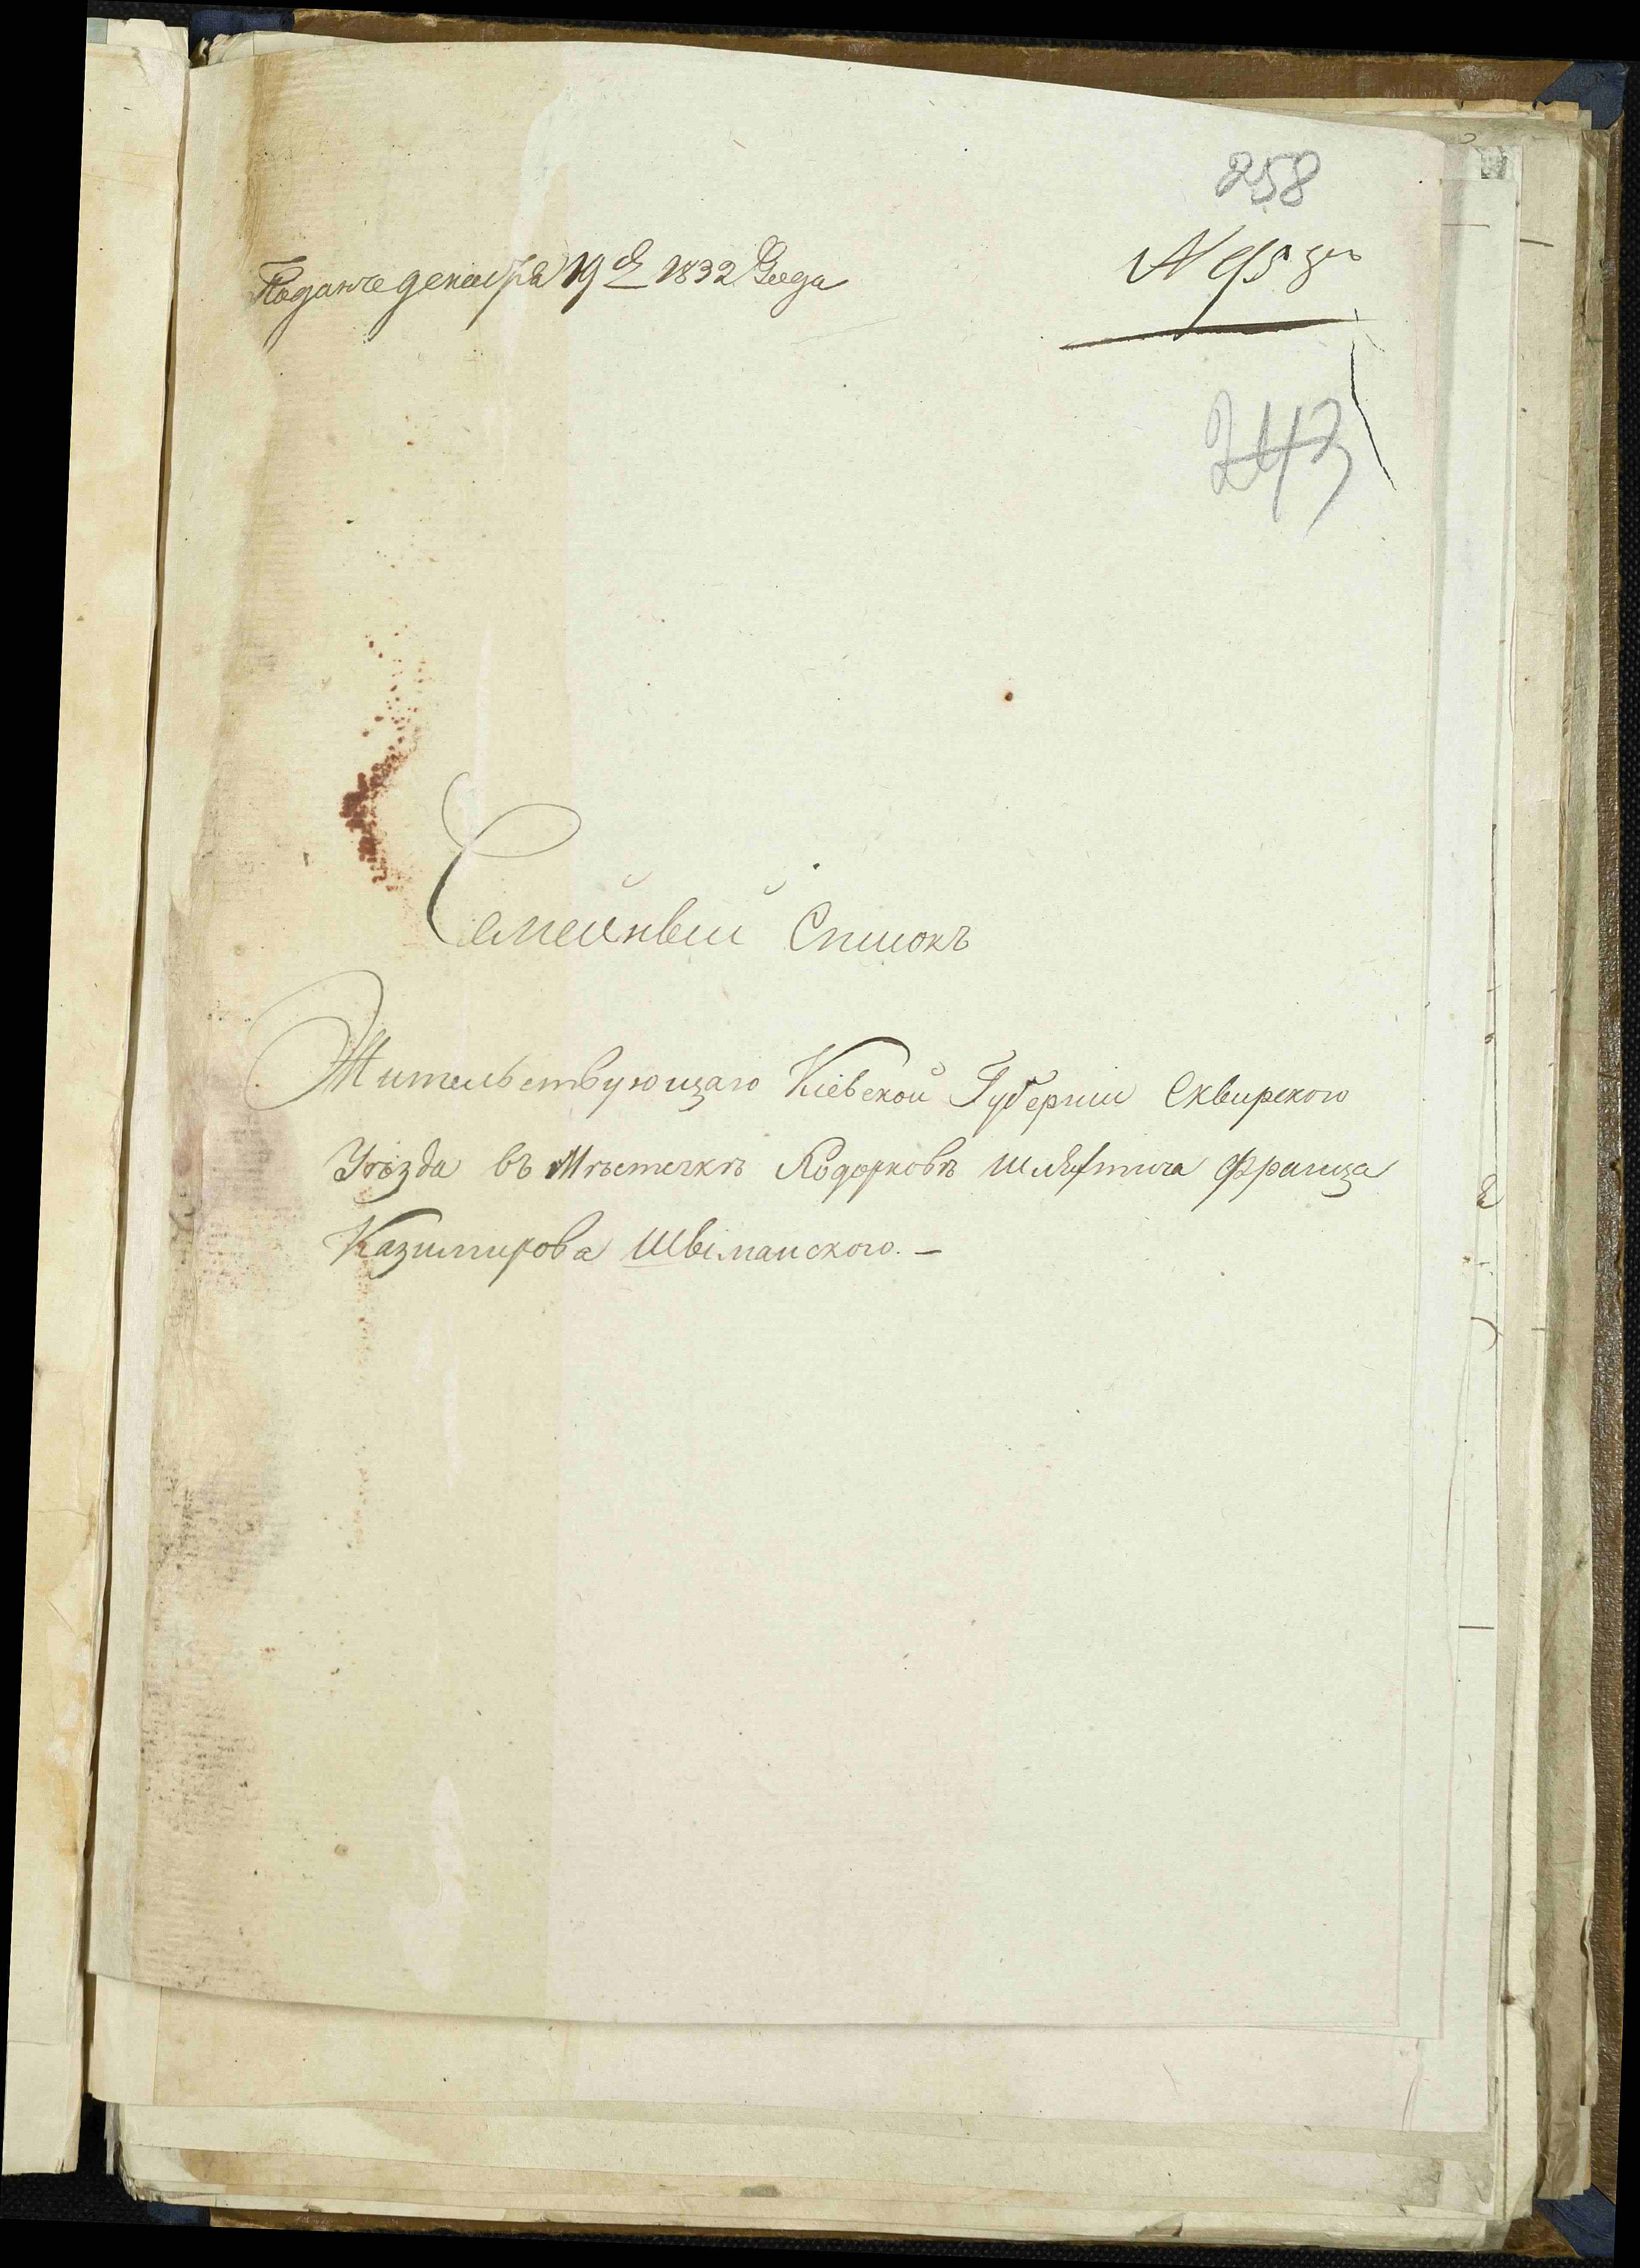 258
Подано декабря 19 д 1832 Года
№ 95
243
Семейный Списокъ
Жительствующаго Кіевской Губерніи Сквирского
Уѣзда въ Мѣстечкѣ Ходорковѣ шляхтича Франца
Казимирова Шыманского. —